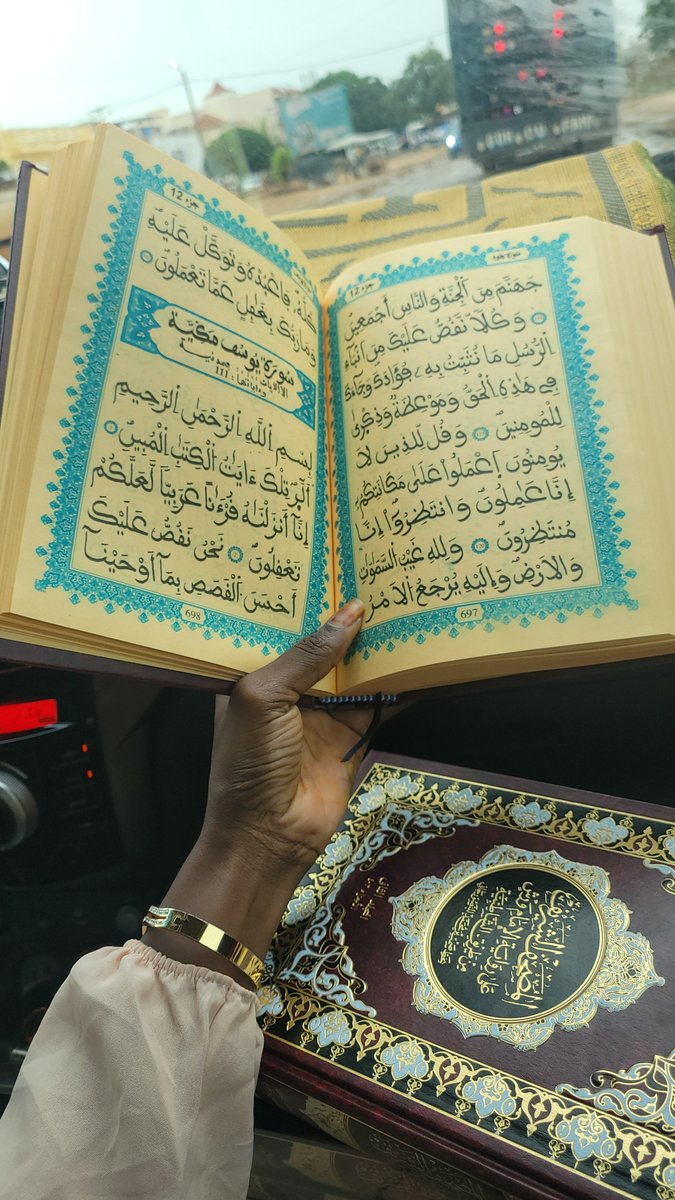 سورة هود
جزء 12
جَهَنَّمَ مِنَ اَلْجِنَّةِ وَالنَّاسِ أَجْمَعِينَ
وَكُلّاً نَّقُصُّ عَلَيْكَ مِنَ اَنۢبَآءِ
اِلرُّسُلِ مَا نُثَبِّتُ بِهِۦ فُؤَادَكَ وَجَآءَكَ
فِے هَٰذِهِ اِلْحَقُّ وَمَوْعِظَةٌ وَذِكْرٜىٰ
لِلْمُومِنِينَ وَقُل لِّلذِينَ لَا
يُومِنُونَ اَعْمَلُواْ عَلَىٰ مَكَانَتِكُمُۥٓ
إِنَّا عَٰمِلُونَ وَانتَظِرُوٓاْ إِنَّا
مُنتَظِرُونَ وَلِلهِ غَيْبُ السَّمَٰوَٰتِ
وَالَارْضِ وَإِلَيْهِ يُرْجَعُ الَامْرُ
697
جزء 12
كُلُّهُۥ فَاعْبُدْهُ وَتَوَكَّلْ عَلَيْهِ
وَمَا رَبُّكَ بِغَٰفِلٍ عَمَّا تَعْمَلُونَ
سورة يوسف مكية
وءاياتها: 111
بِسْمِ اِللَّهِ اِلرَّحْمَٰنِ اِلرَّحِيمِ
أَلَٓرۖ تِلْكَ ءَايَٰتُ الْكِتَٰبِ الْمُبِينِ
إِنَّآ أَنزَلْنَٰهُ قُرْءَٰناً عَرَبِيّاً لَّعَلَّكُمْ
تَعْقِلُونَ نَحْنُ نَقُصُّ عَلَيْكَ
أَحْسَنَ اَلْقَصَصِ بِمَآ أَوْحَيْنَآ
698
المصحف الشريف